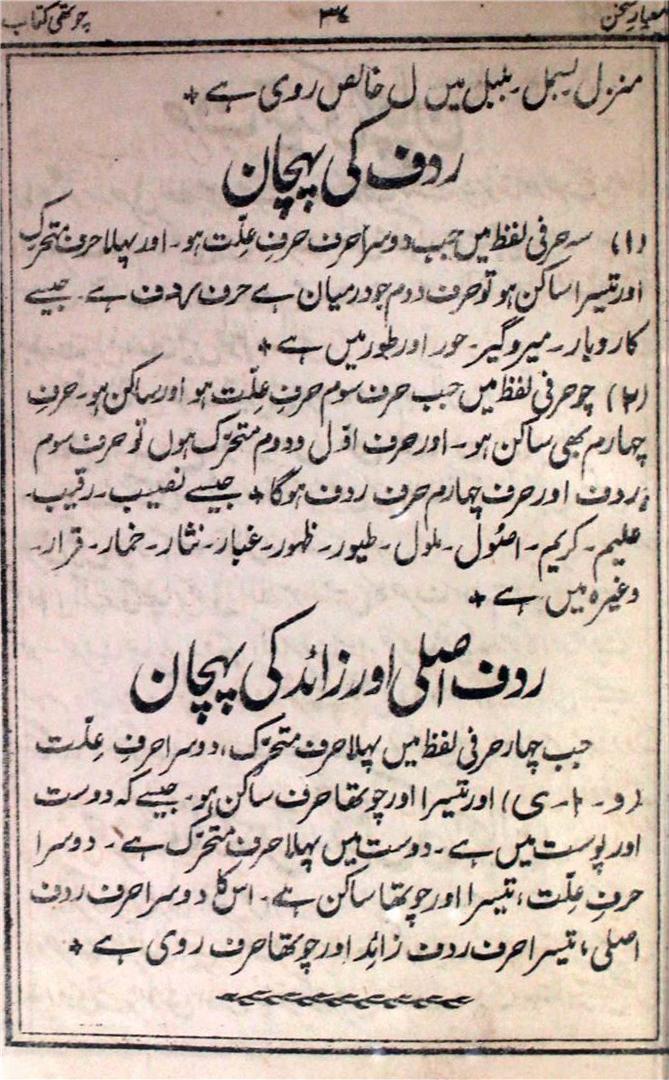 معیارِ سخن ۳۴ چوتھی کتاب
منزل بسمل۔ بلبل میں ل خالص روی ہے +
ردف کی پہچان
(۱) سہ حرفی لفظ میں جب دوسرا حرف حرفِ علّت ہو۔ اور پہلا حرف متحرک
اور تیسرا ساکن ہو تو حرف دوم جو درمیان ہے حرف ردف ہے۔ جیسے
کار و بار۔ میر و گیر۔ حور اور طور میں ہے +
(۲) چو حرفی لفظ میں جب حرف سوم حرفِ علّت ہو اور ساکن ہو۔ حرفِ
چہارم بھی ساکن ہو۔ اور حرف اوّل و دوم متحرّک ہوں تو حرف سوم
ردف اور حرف چہارم حرف ردف ہوگا + جیسے نصیب۔ رقیب۔
علیم۔ کریم۔ اصُول۔ ملول۔ طیور۔ ظہور۔ غبار۔ نثار۔ خمار۔ قرار۔
وغیرہ میں ہے +
ردف اصلی اور زائد کی پہچان
جب چہار حرفی لفظ میں پہلا حرف متحرّک، دوسرا حرفِ علّت
(و۔ ا۔ ی) اور تیسرا اور چوتھا حرف ساکن ہو۔ جیسے کہ دوست
اور پوست میں ہے۔ دوست میں پہلا حرف متحرّک ہے۔ دوسرا
حرفِ علّت، تیسرا اور چوتھا ساکن ہے۔ اس کا دوسرا حرف ردف
اصلی، تیسرا حرف ردف زائد اور چوتھا حرف روی ہے +